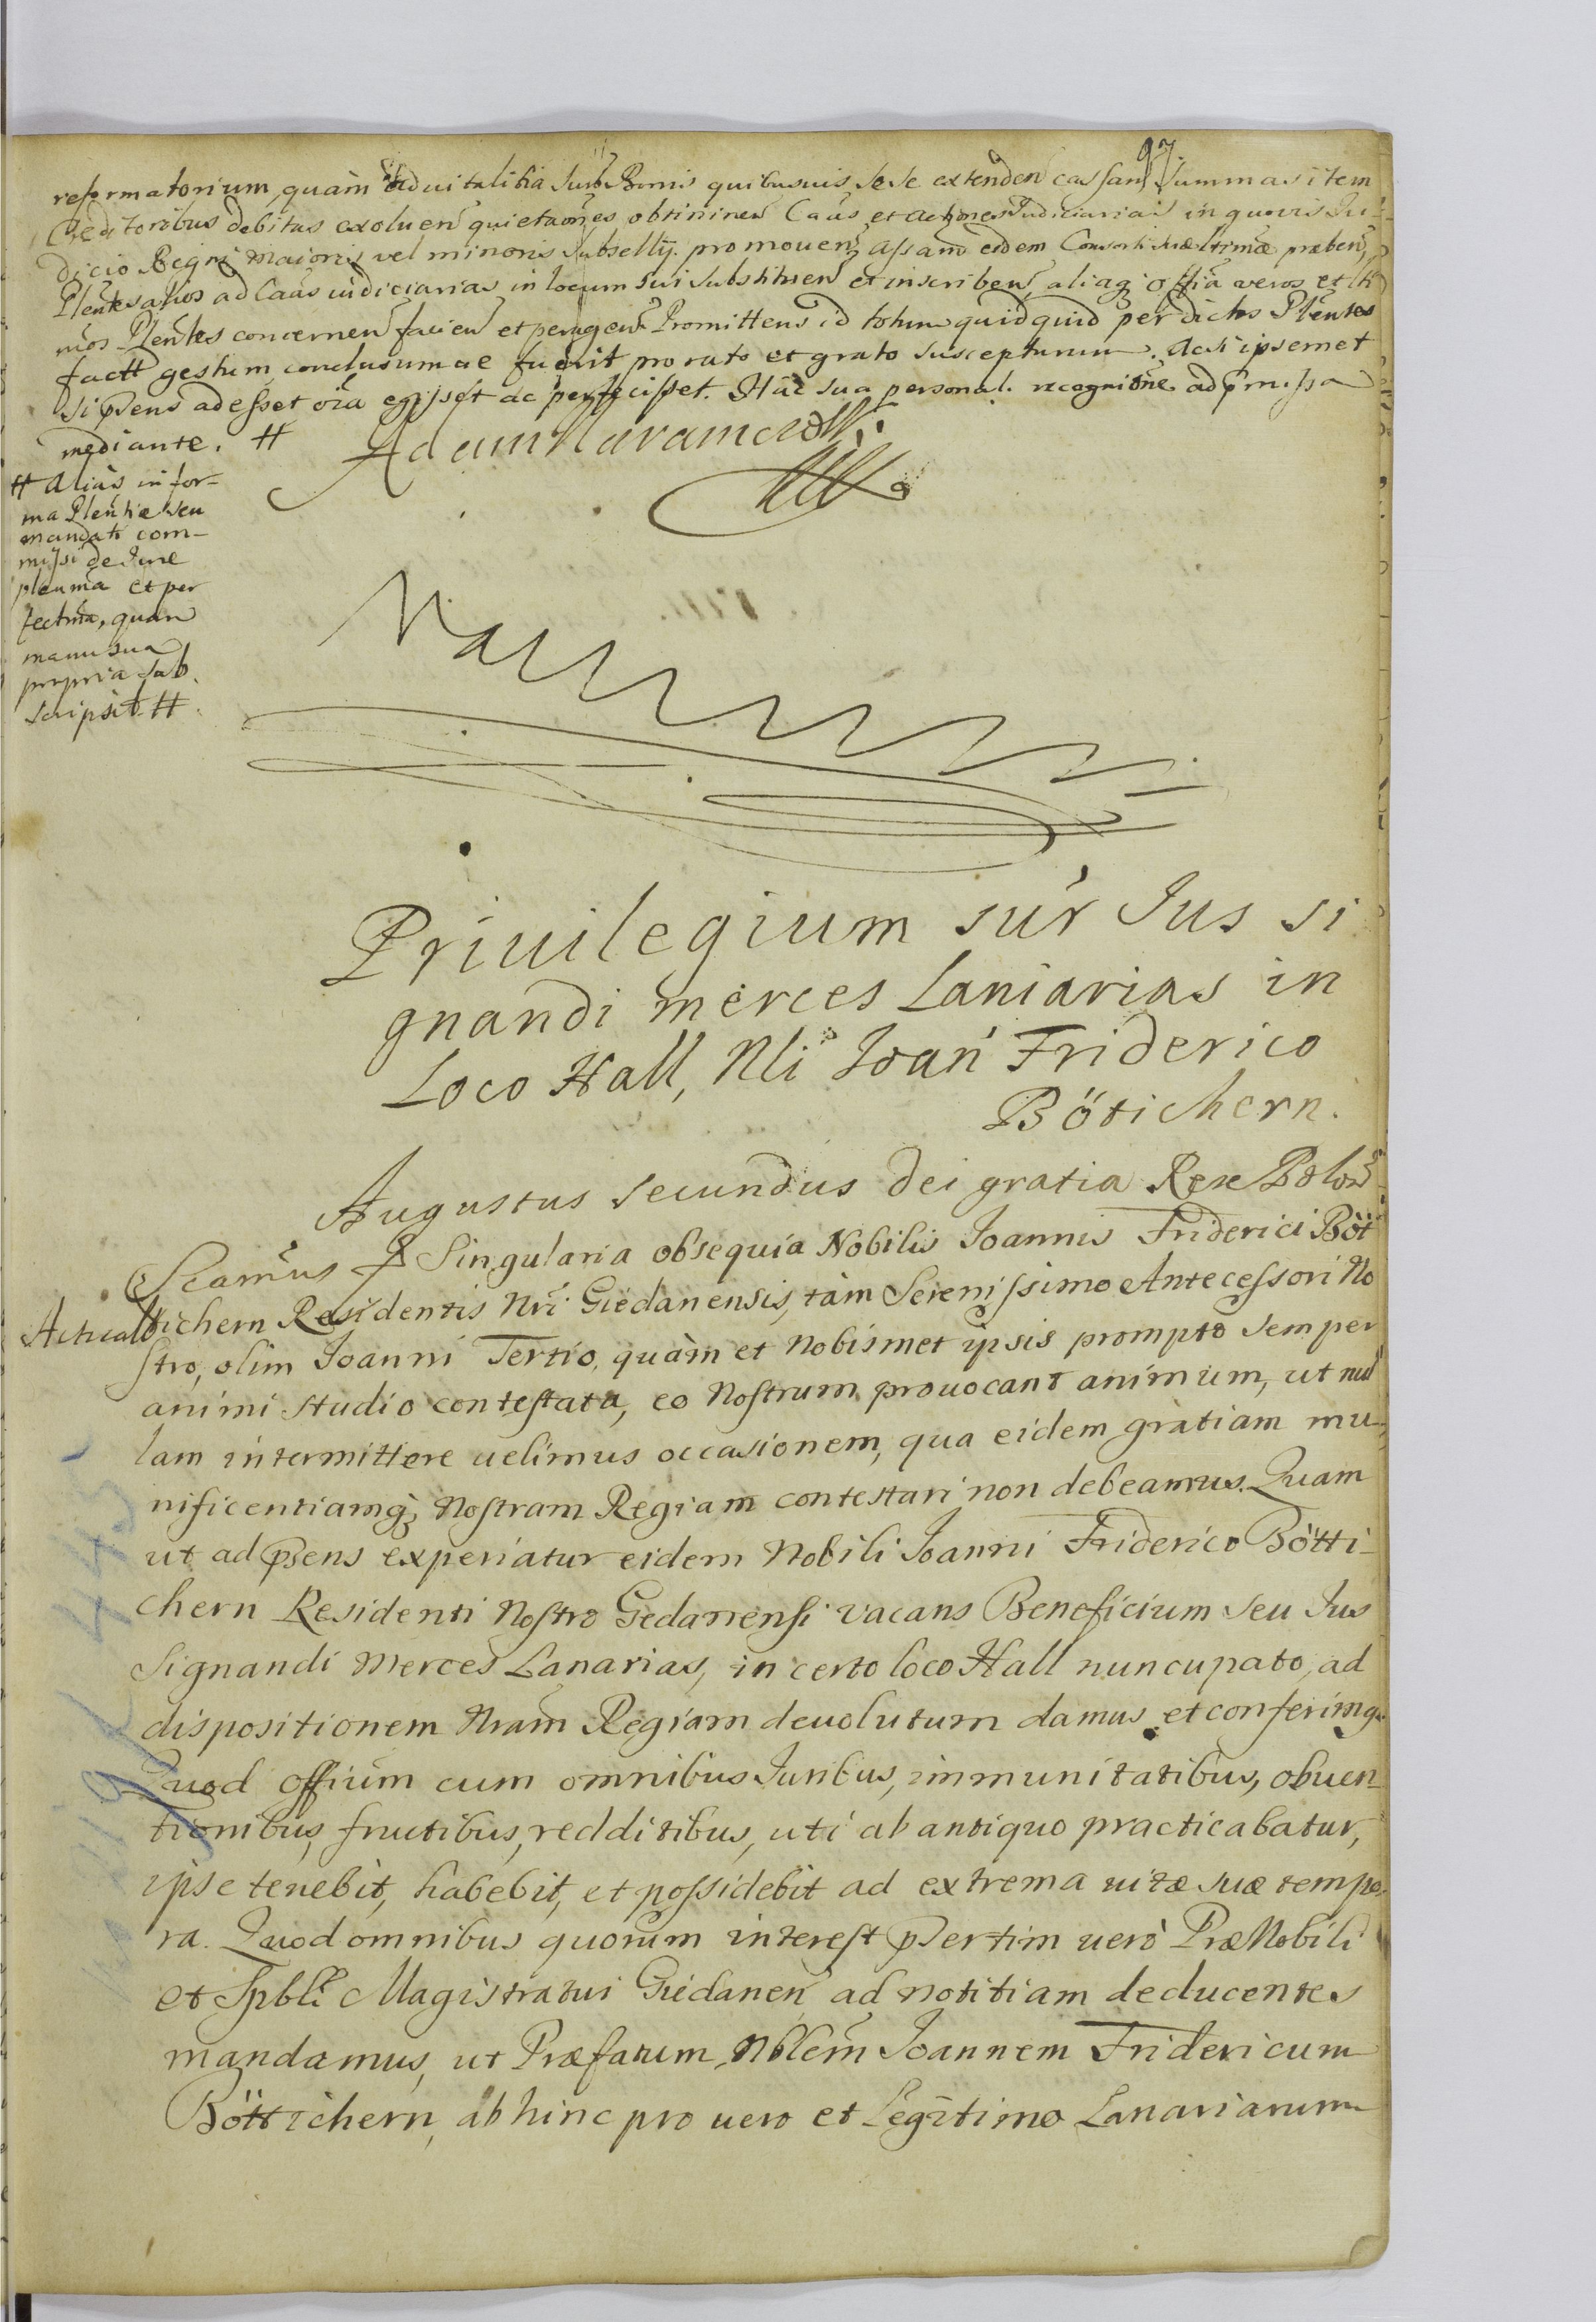 97.
reformatorium, quàm aduitalitia Juxta Bonis quibusuis sese extenden cassan Summas item
Creditoribus debitas exoluen quietaoñes obtininen Caũs et actiones Judiciarias in quovis Ju-
dicio Regni maioris vel minoris Subsellij promouen, assam̃ eidem Consorti suæ ltimæ præben,
Plentes alios ad Caũs iudiciarias in locum sui substituen et inscriben, aliaq offia veros et lti
mos Plentes concernen facien et peragen. Promittens id totum quidquid per dictos Plentes
factt gestum, conclusumue fuerit pro rato et grato suscepturum. Acsi ipsemet
si p̃sens adesset oĩa egisset ac perfecisset. Hãc sua personal. recognitioñe ad p̃missa
mediante. #
# Alias in for-
ma Plentiæ seu
mandati com-
missi de Jure
plenma et per
fectma, quam
manu sua
propria sub
scripsit. #
Privilegium suṙ Jus si
gnandi merces Laniarias in
Loco Hall, Nli Joañ Friderico
Bötichern.
Augustus secundus dei gratia Rex Polon̄
Scam̃us ꝑ Singularia obsequia Nobilis Joannis Friderici Böt
Actual tichern Residentis Nrĩ Giedanensis, tàm Serenissimo Antecessori No
stro, olim Joanni Tertio, quàm et Nobismet ipsis prompto semper
animi studio contestata, eo Nostrum prouocant animum, ut nul
lam intermittere uelimus occasionem, qua eidem gratiam mu-
nificentiamq; Nostram Regiam contestari non debeamus. Quam
ut ad p̃sens experiatur eidem Nobili Joanni Friderico Bötti-
chern Residenti Nostro Gedanensi vacans Beneficium seu Jus
Signandi Merces Lanarias, in certo loco Hall nuncupato, ad
dispositionem Nram̃ Regiam deuolutum damus et conferimq.
Quod offium cum omnibus Juribus, immunitatibus, obuen
tionibus, fructibus, redditibus, uti ab antiquo practicabatur,
ipse tenebit, habebit, et possidebit ad extrema uitæ suæ tempo
ra. Quod omnibus quorum interest p̃sertim uerò Præ Nobili
et Spbli Magistratui Giedanen̄ ad notitiam deducentes
mandamus, ut Præfatum, Nblem̃ Joannem Fridericum
Böttichern, abhinc pro uero et Legitimo Lanariarum